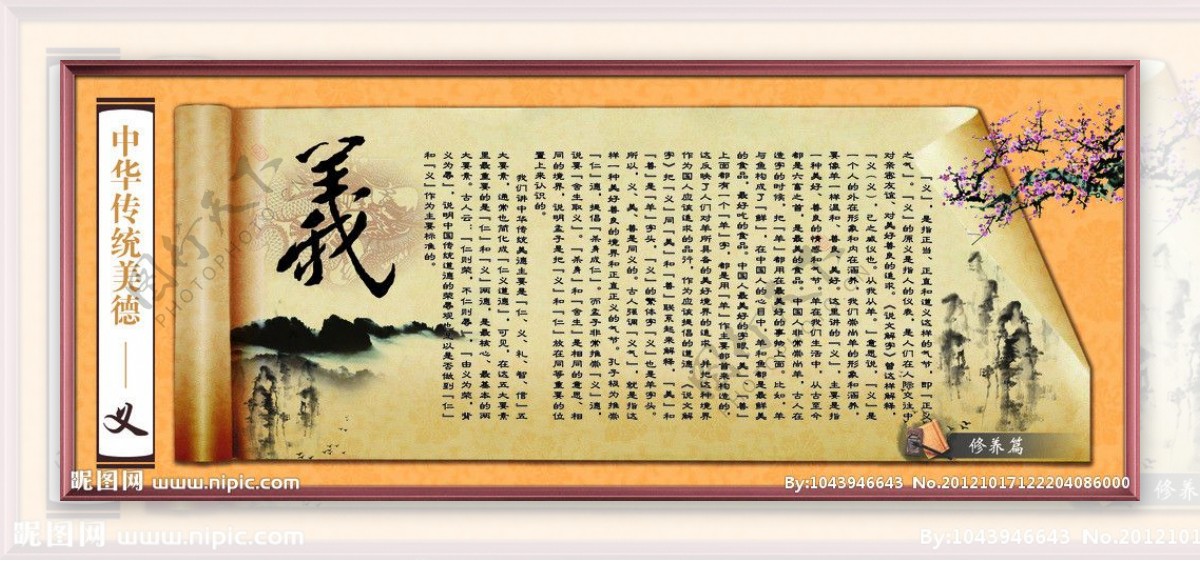 中华传统美德——义
義
「义」，是指正当、正直和道义这样的气节，即「正义
之气」。「义」的原义是指人的仪表，是人们在人际交往中
对亲密友谊、对美好善良的追求。《说文解字》曾这样解释，
「义（义），己之威仪也。从我从羊。」意思说，「义」是
一个人的外在形象和内在涵养。我们崇尚羊的形象和涵养，
要像羊一样温和、善良、美好。这里讲的「义」，主要是指
一种美好、善良的情感和气节。羊在我们生活中，从古至今
都是六畜之首，是最美的食品。中国人非常崇尚羊，古人在
造字的时候，把「羊」都用在最美好的事物上面。比如，羊
与鱼构成了「鲜」，在中国人的心目中，羊和鱼都是最鲜美
的食品，最好吃的食品。中国人最美好的字眼，「美」「善」
上面都有一个「羊」字，都是用「羊」作主要部首来构造的。
这反映了人们对羊所具备的美好境界的追求，并把这种境界
作为国人应该追求的品行，作为应该提倡的道德。《说文解
字》把「义」同「美」和「善」联系起来解释，「美」和
「善」是「羊」字头，「义」的繁体字「义」也是羊字头。
所以，义、美、善是同义的。古人强调「义气」，就是指这
样一种美好善良的境界和正直正义的气节。孔子极为推崇
「仁」德，提倡「杀身成仁」。而孟子非常推崇「义」德，
说要「舍生取义」。「杀身」和「舍生」是相同的意思、相
同的境界，说明孟子是把「义」和「仁」放在同等重要的位
置上来认识的。
我们讲中华传统美德主要是「仁、义、礼、智、信」五
大要素，通常也简化成「仁义道德」，可见，在这五大要素
里最重要的是「仁」和「义」两德，是最核心、最基本的两
大要素。古人云：「仁则荣，不仁则辱」，「由义为荣，背
义为辱」，说明中国传统道德的荣辱观也是以是否做到「仁」
和「义」作为主要标准的。
修养篇
昵图网 www.nipic.com
By:1043946643 No.20121017122204086000
修养
昵图网 www.nipic.com
By:1043946643 No.2012101